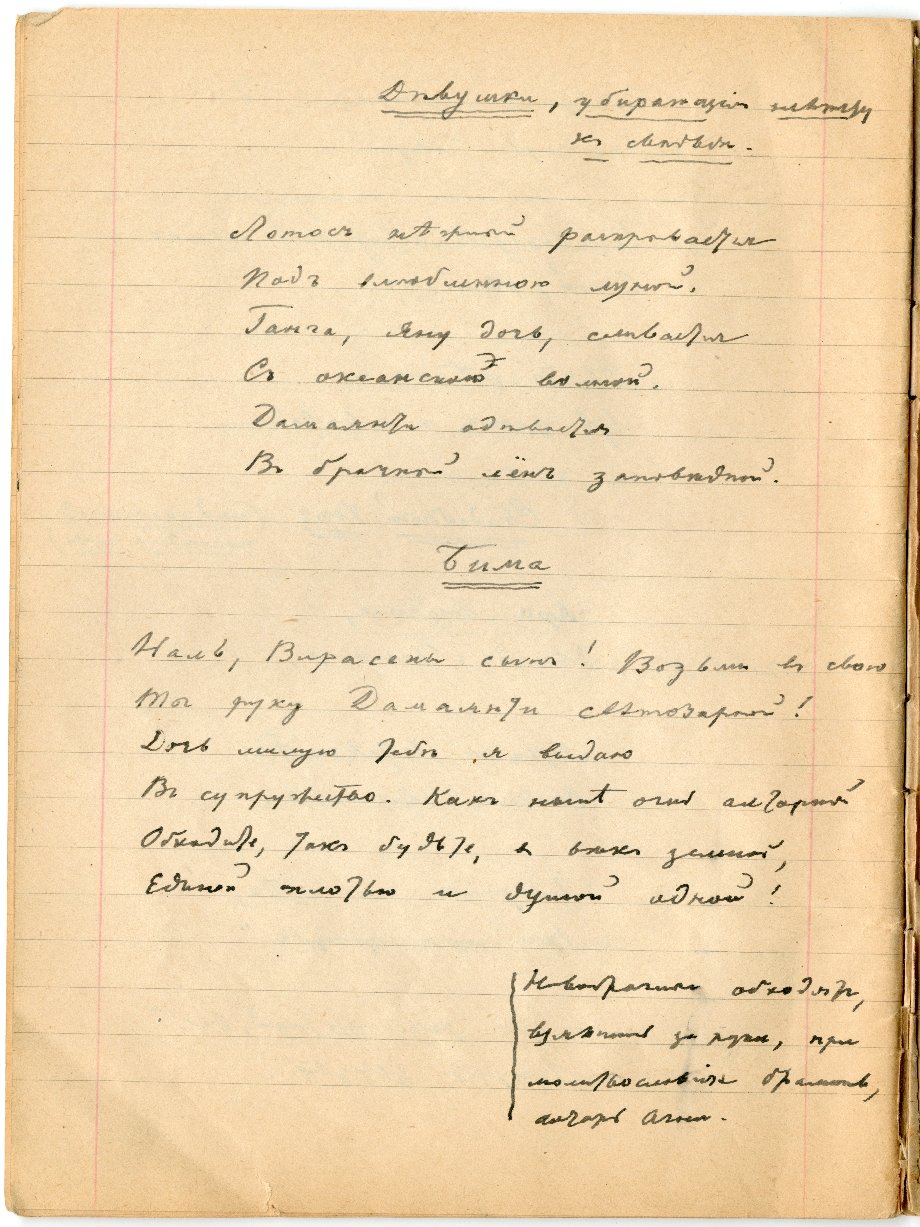 Дѣвушки, убирающія невѣсту
къ свадьбѣ.
Лотосъ нѣжный раскрывается
Подъ влюбленною луной.
Ганга, Яну дочь, сливается
Съ океанской волной.
Дамаянти одѣвается
Въ брачный лёнъ заповѣдной.
Бима
Наль, Вирасены сынъ! Возьми въ свою
Ты руку Дамаянти свѣтозарной!
Дочь милую тебѣ я выдаю
Въ супружество. Какъ нынѣ огнь алтарный
Обходите, такъ будьте, въ вѣкъ земной,
Единой плотью и душой одной!
Новобрачные обходятъ,
взявшись за руки, при
молитвословіяхъ браминовъ,
алтарь Агни.